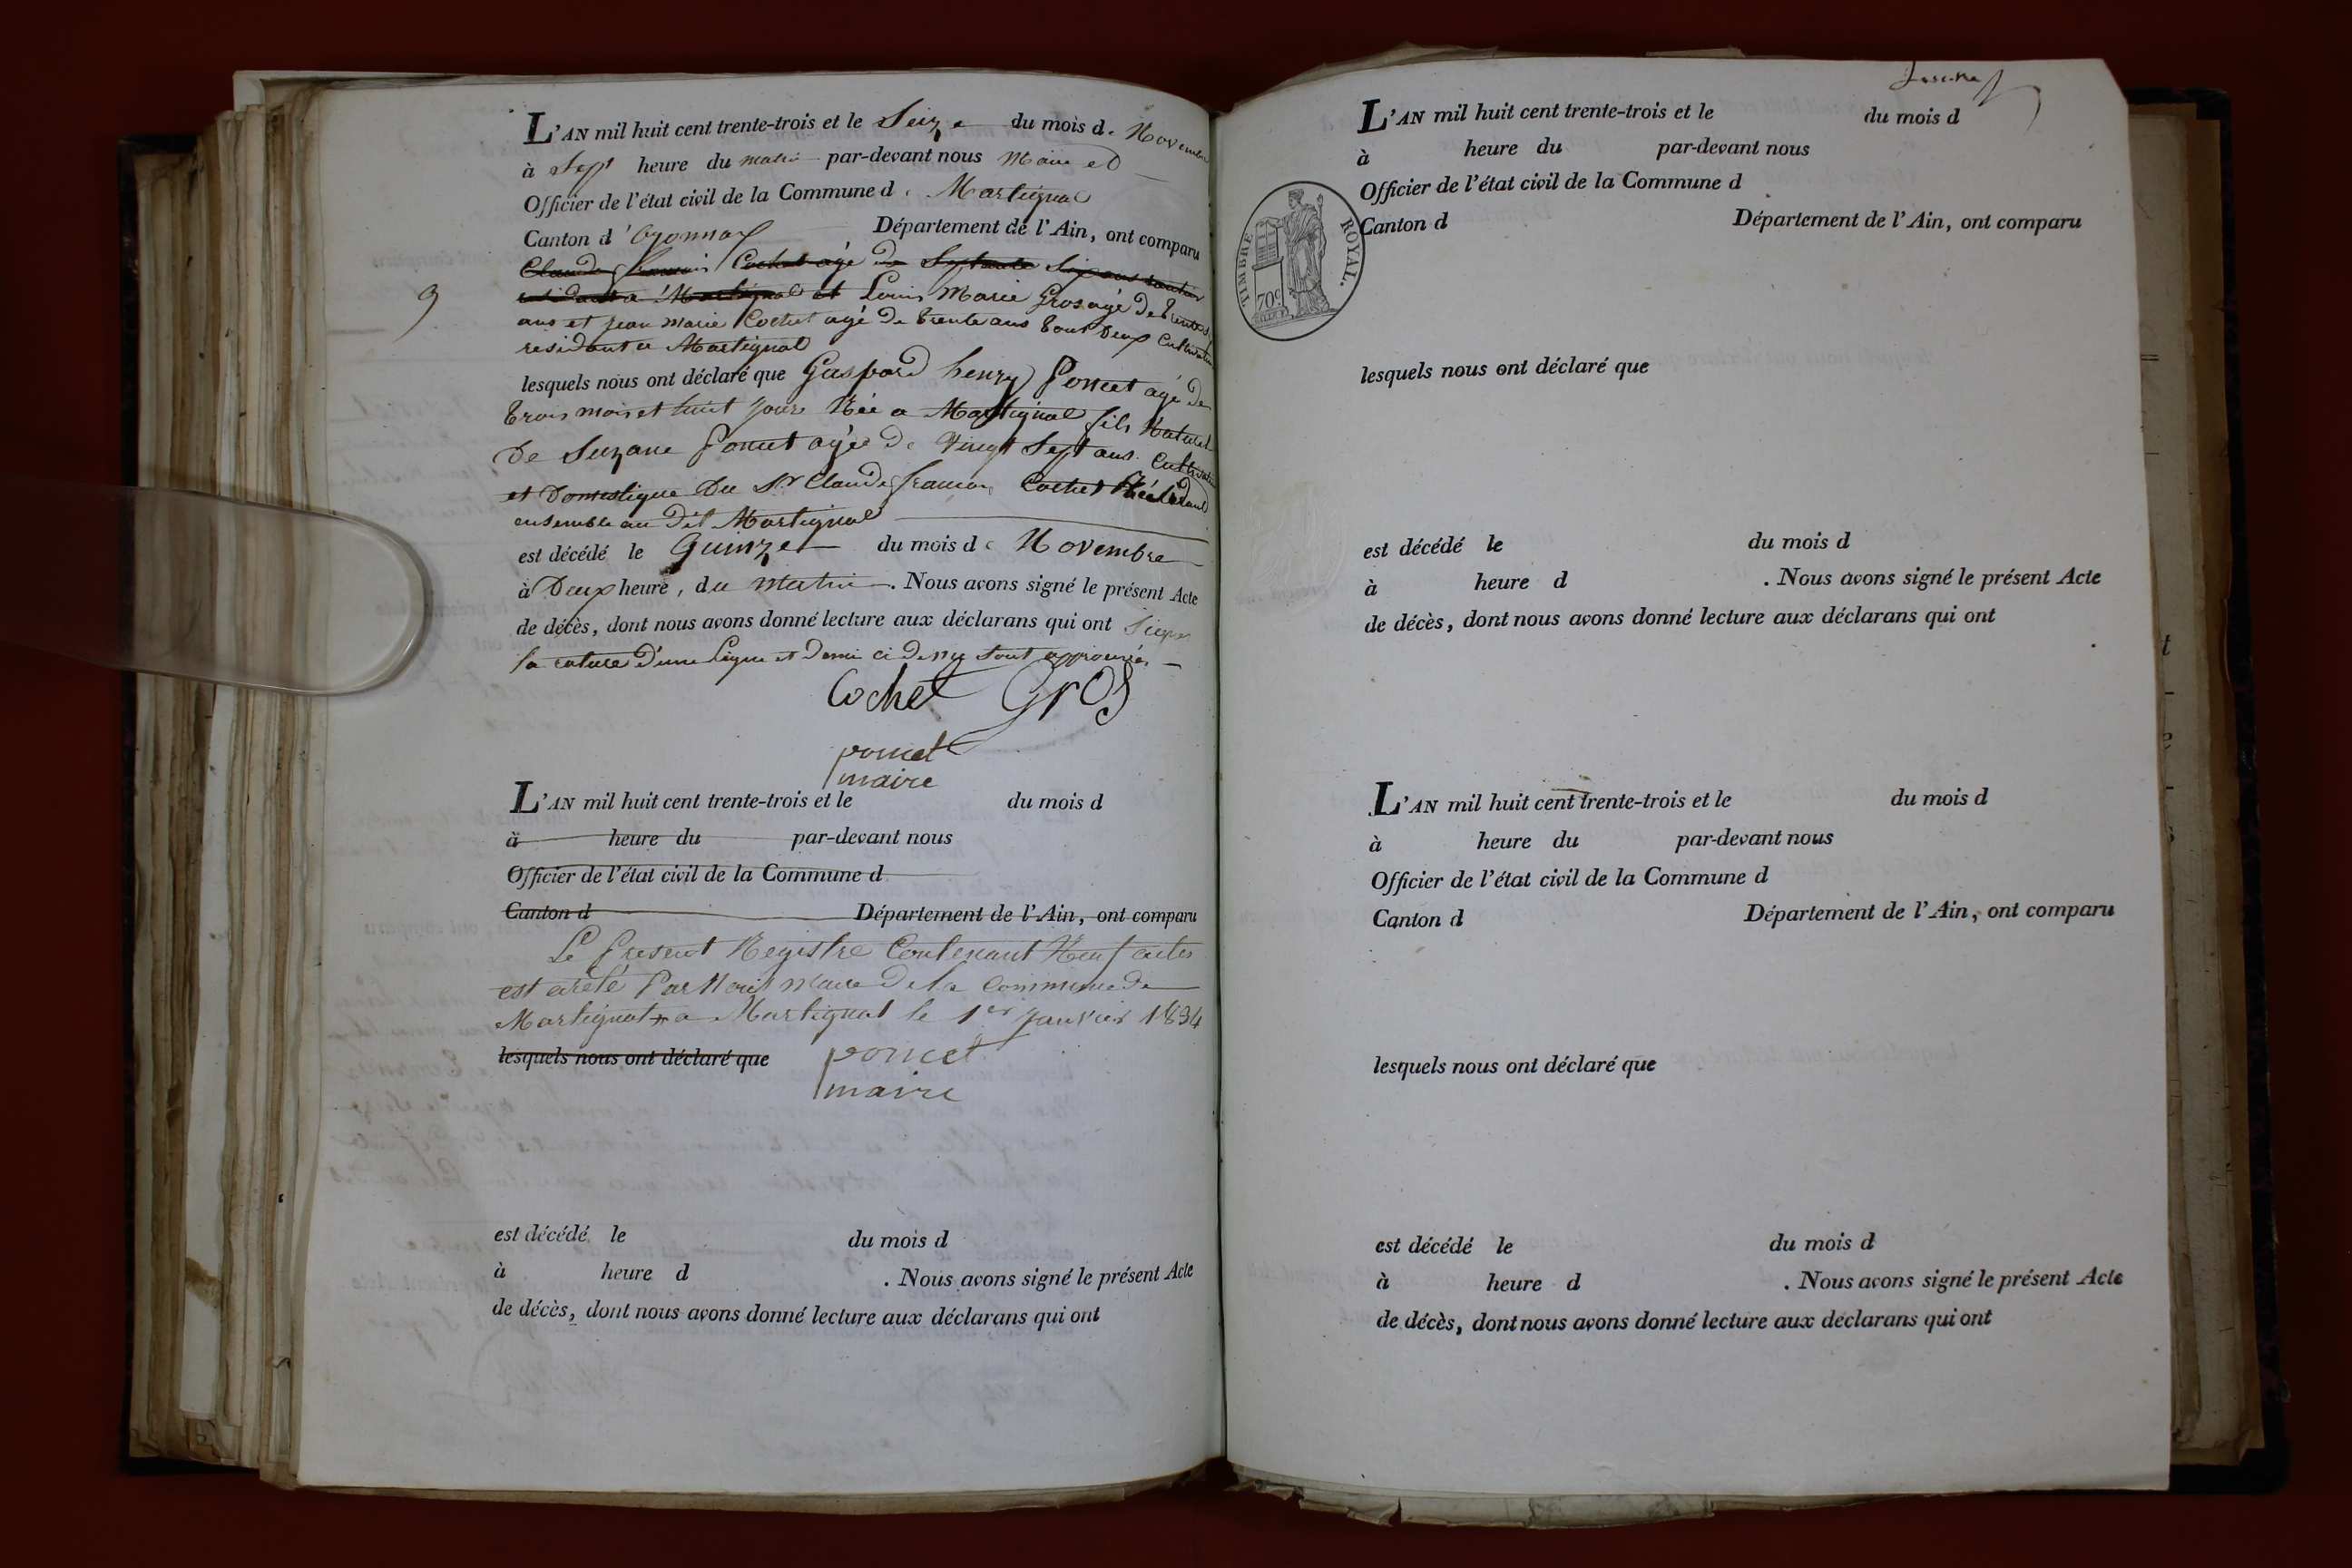 L'AN mil huit cent trente-trois et le Seize du mois de Novembre
à Sept heure du matin par-devant nous Maire et
Officier de l'état civil de la Commune de Martignat
Canton d'Oyonnax Département de l'Ain, ont comparu
Claude François Cochet agé de Septante Six ans rentier
residant a Martignat et Louis Marie Gros agé de trente
ans et jean marie Cochet agé de trente ans tous deux Cultivateurs
residant a Martignat
9
lesquels nous ont déclaré que Gaspard henry Poncet agé de
trois mois et huit jours Née a Martignat fils Naturel
De Suzane Poncet agée de Vingt Sept ans Cultivatrice
et Domestique Du Sr Claude francois Cochet
ensemble au Dit Martignat
est décédé le Quinze du mois de Novembre
à Deux heure, du Matin. Nous avons signé le présent Acte
de décès, dont nous avons donné lecture aux déclarans qui ont Signé
la rature d'une Ligne et Demi ci desus sont approuvées
Cochet Gros
poncet
maire
L'AN mil huit cent trente-trois et le du mois d
à heure du par-devant nous
Officier de l'état civil de la Commune d
Canton d Département de l'Ain, ont comparu
Le Present Registre Contenant Neuf actes
est areté Par Nous Maire De la Commune de
Martignat a Martignat le 1er Janvier 1834
lesquels nous ont déclaré que poncet
maire
est décédé le du mois d
à heure d . Nous avons signé le présent Acte
de décès, dont nous avons donné lecture aux déclarans qui ont
L'AN mil huit cent trente-trois et le du mois d
à heure du par-devant nous
Officier de l'état civil de la Commune d
Canton d Département de l'Ain, ont comparu
TIMBRE ROYAL.
70c
lesquels nous ont déclaré que
est décédé le du mois d
à heure d . Nous avons signé le présent Acte
de décès, dont nous avons donné lecture aux déclarans qui ont
L'AN mil huit cent trente-trois et le du mois d
à heure du par-devant nous
Officier de l'état civil de la Commune d
Canton d Département de l'Ain, ont comparu
lesquels nous ont déclaré que
est décédé le du mois d
à heure d . Nous avons signé le présent Acte
de décès, dont nous avons donné lecture aux déclarans qui ont